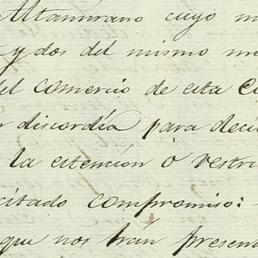 Altamirano cuyo
y dos del mismo me
el comercio de esta
discordia para deci
la estención ò restri
citado compromiso:
que nos han presen